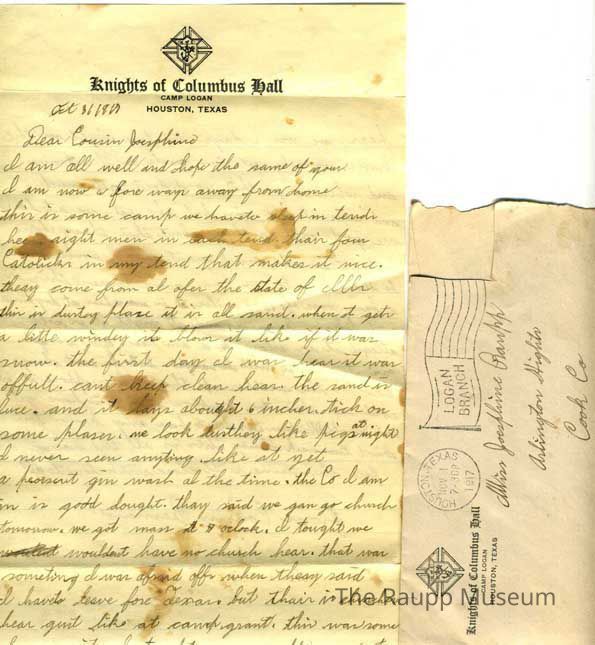 Knights of Columbus Hall
CAMP LOGAN
HOUSTON, TEXAS
Dear Cousin Josephine
I am all well and hope the same of your
I am now a fore ways away from home
this is some camp we haveto sleep in tend
eight men in each tend thair four
Catolicks in my tend that makes it nice.
theay come from al ofer the state of
this is dustey place it is all sand. when it gets
a little windey it blows it like if it was
snow. the first day I was hear it was
offull. cant keep clean hear. the sand is
and it lays abought 6 inches tick on
some plases. we look lusthey like pigs at night
I never seen anyting like at yet
a peorsent gin wash al the time. the Co I am
in is good dought. thay said we gan go church
tomorow. we got mass at 8 oclock. I tought we
wouldent have no church hear. that was
someting I was afraid offs when theay said
I haveto leave fore Texas. but thair is church
hear quit like at camp grant. this was some
LOGAN
BRANCH
HOUSTON, TEXAS
NOV 1
7-30P
1917
Miss Josephine Raupp
Arlington Hights
Cook Co
Knights of Columbus Hall
CAMP LOGAN
HOUSTON, TEXAS
The Raupp Museum